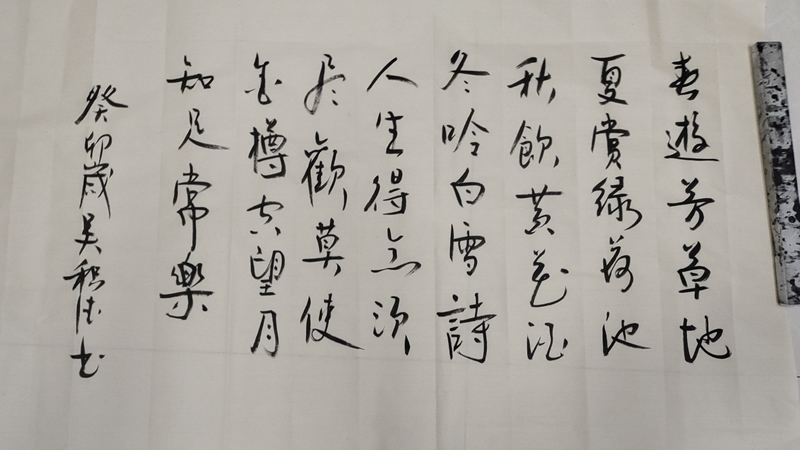 春遊芳草地
夏賞绿荷池
秋飲黄花酒
冬吟白雪詩
人生得意须
尽歡莫使
金樽空望月
知足常樂
癸卯岁吴积德书